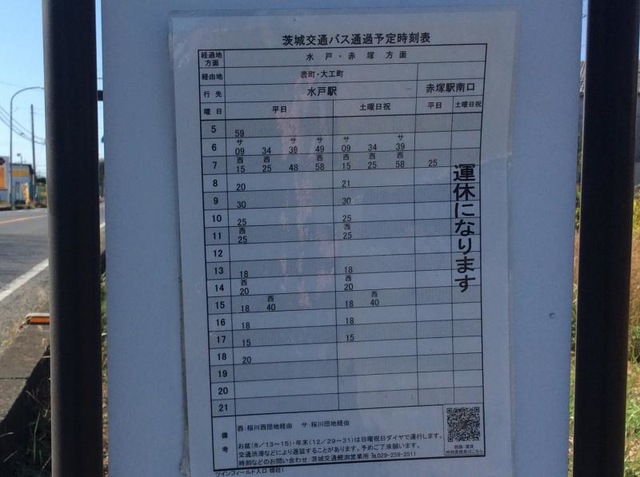 茨城交通バス通過予定時刻表
経過地方面 水戸・赤塚 方面
経由地 表町・大工町
行先 水戸駅 赤塚駅南口
曜日 平日 土曜日祝 平日 土曜日祝
5 59
6 サ09 34 サ39 サ49 サ09 34 サ39
7 西15 西25 48 西58 西15 西25 西58 25
8 20 21
9 30 30
10 25 25
11 西25 西25
12
13 18 18
14 西20 西20
15 18 西40 18 西40
16 18 18
17 15 15
18 20
19
20
21
運休になります
備考
西:桜川西団地経由 サ:桜川団地経由
お盆(8/13~15)・年末(12/29~31)は日曜祝日ダイヤで運行します。
交通渋滞などにより遅延することがあります。予めご了承願います。
時刻などのお問い合わせ 茨城交通鯉渕営業所 ℡029-259-2511